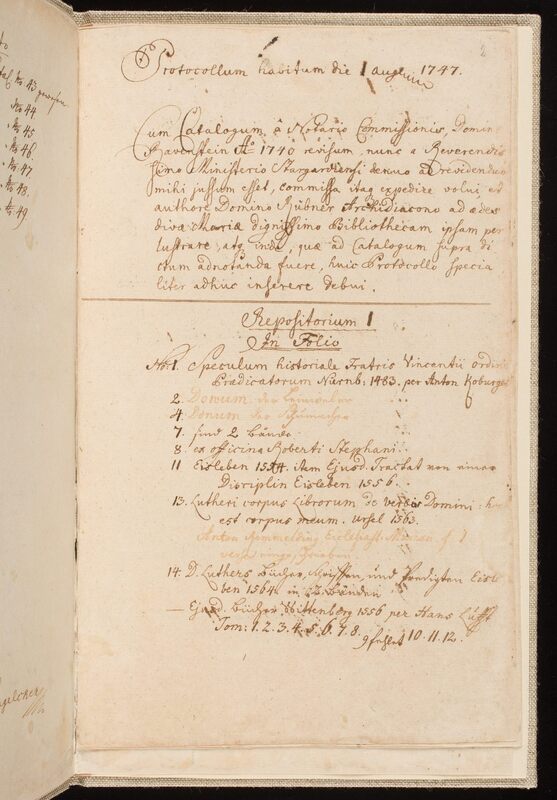 No 43 gewesen
No 44
No 45
No 46.
No 47
No 48.
No 49
2
Protocollum habitum die 1 Augusti 1747.
Cum Catalogum, à Notario Commissionis, Domino
Ravenstein Ao 1740 revisum, nunc a Reverendis
simo Ministerio Stargardiensi denuo ad revidendum
mihi jussum esset, commissa itaq expedire volui, et
authore Domino Hübner Archidiacono ad ædes
divæ Mariæ dignissimo Bibliothecam ipsam per
lustrare, atq inde, quæ ad Catalogum supra di
ctum adnotanda fuere, huic Protocollo specia
liter adhuc inserere debui.
Repositorium 1
In Folio
No. 1. Speculum historiale Fratris Vincentii ordinis
Prædicatorum Nürnb: 1483. per Anton Koburger
2. Donum der Leinweber
4. Donum der Schumacher
7. sind 2 Bände
8. ex officina Roberti Stephani
11 Eisleben 1554. item Ejusd. Tractat von einer
Disciplin Eisleben 1556.
13. Lutheri corpus Librorum de verbis Domini: hoc
est corpus meum. Ursel 1563.
Anton
14. D. Luthers Bücher, Schrifften, und Predigten Eisle
ben 1564. in 2 Bänden
— Ejusd. Bücher Wittenberg 1556 per Hans Lufft
Tom: 1. 2. 3. 4. 5. 6. 7. 8. 9 fehlet 10. 11. 12.